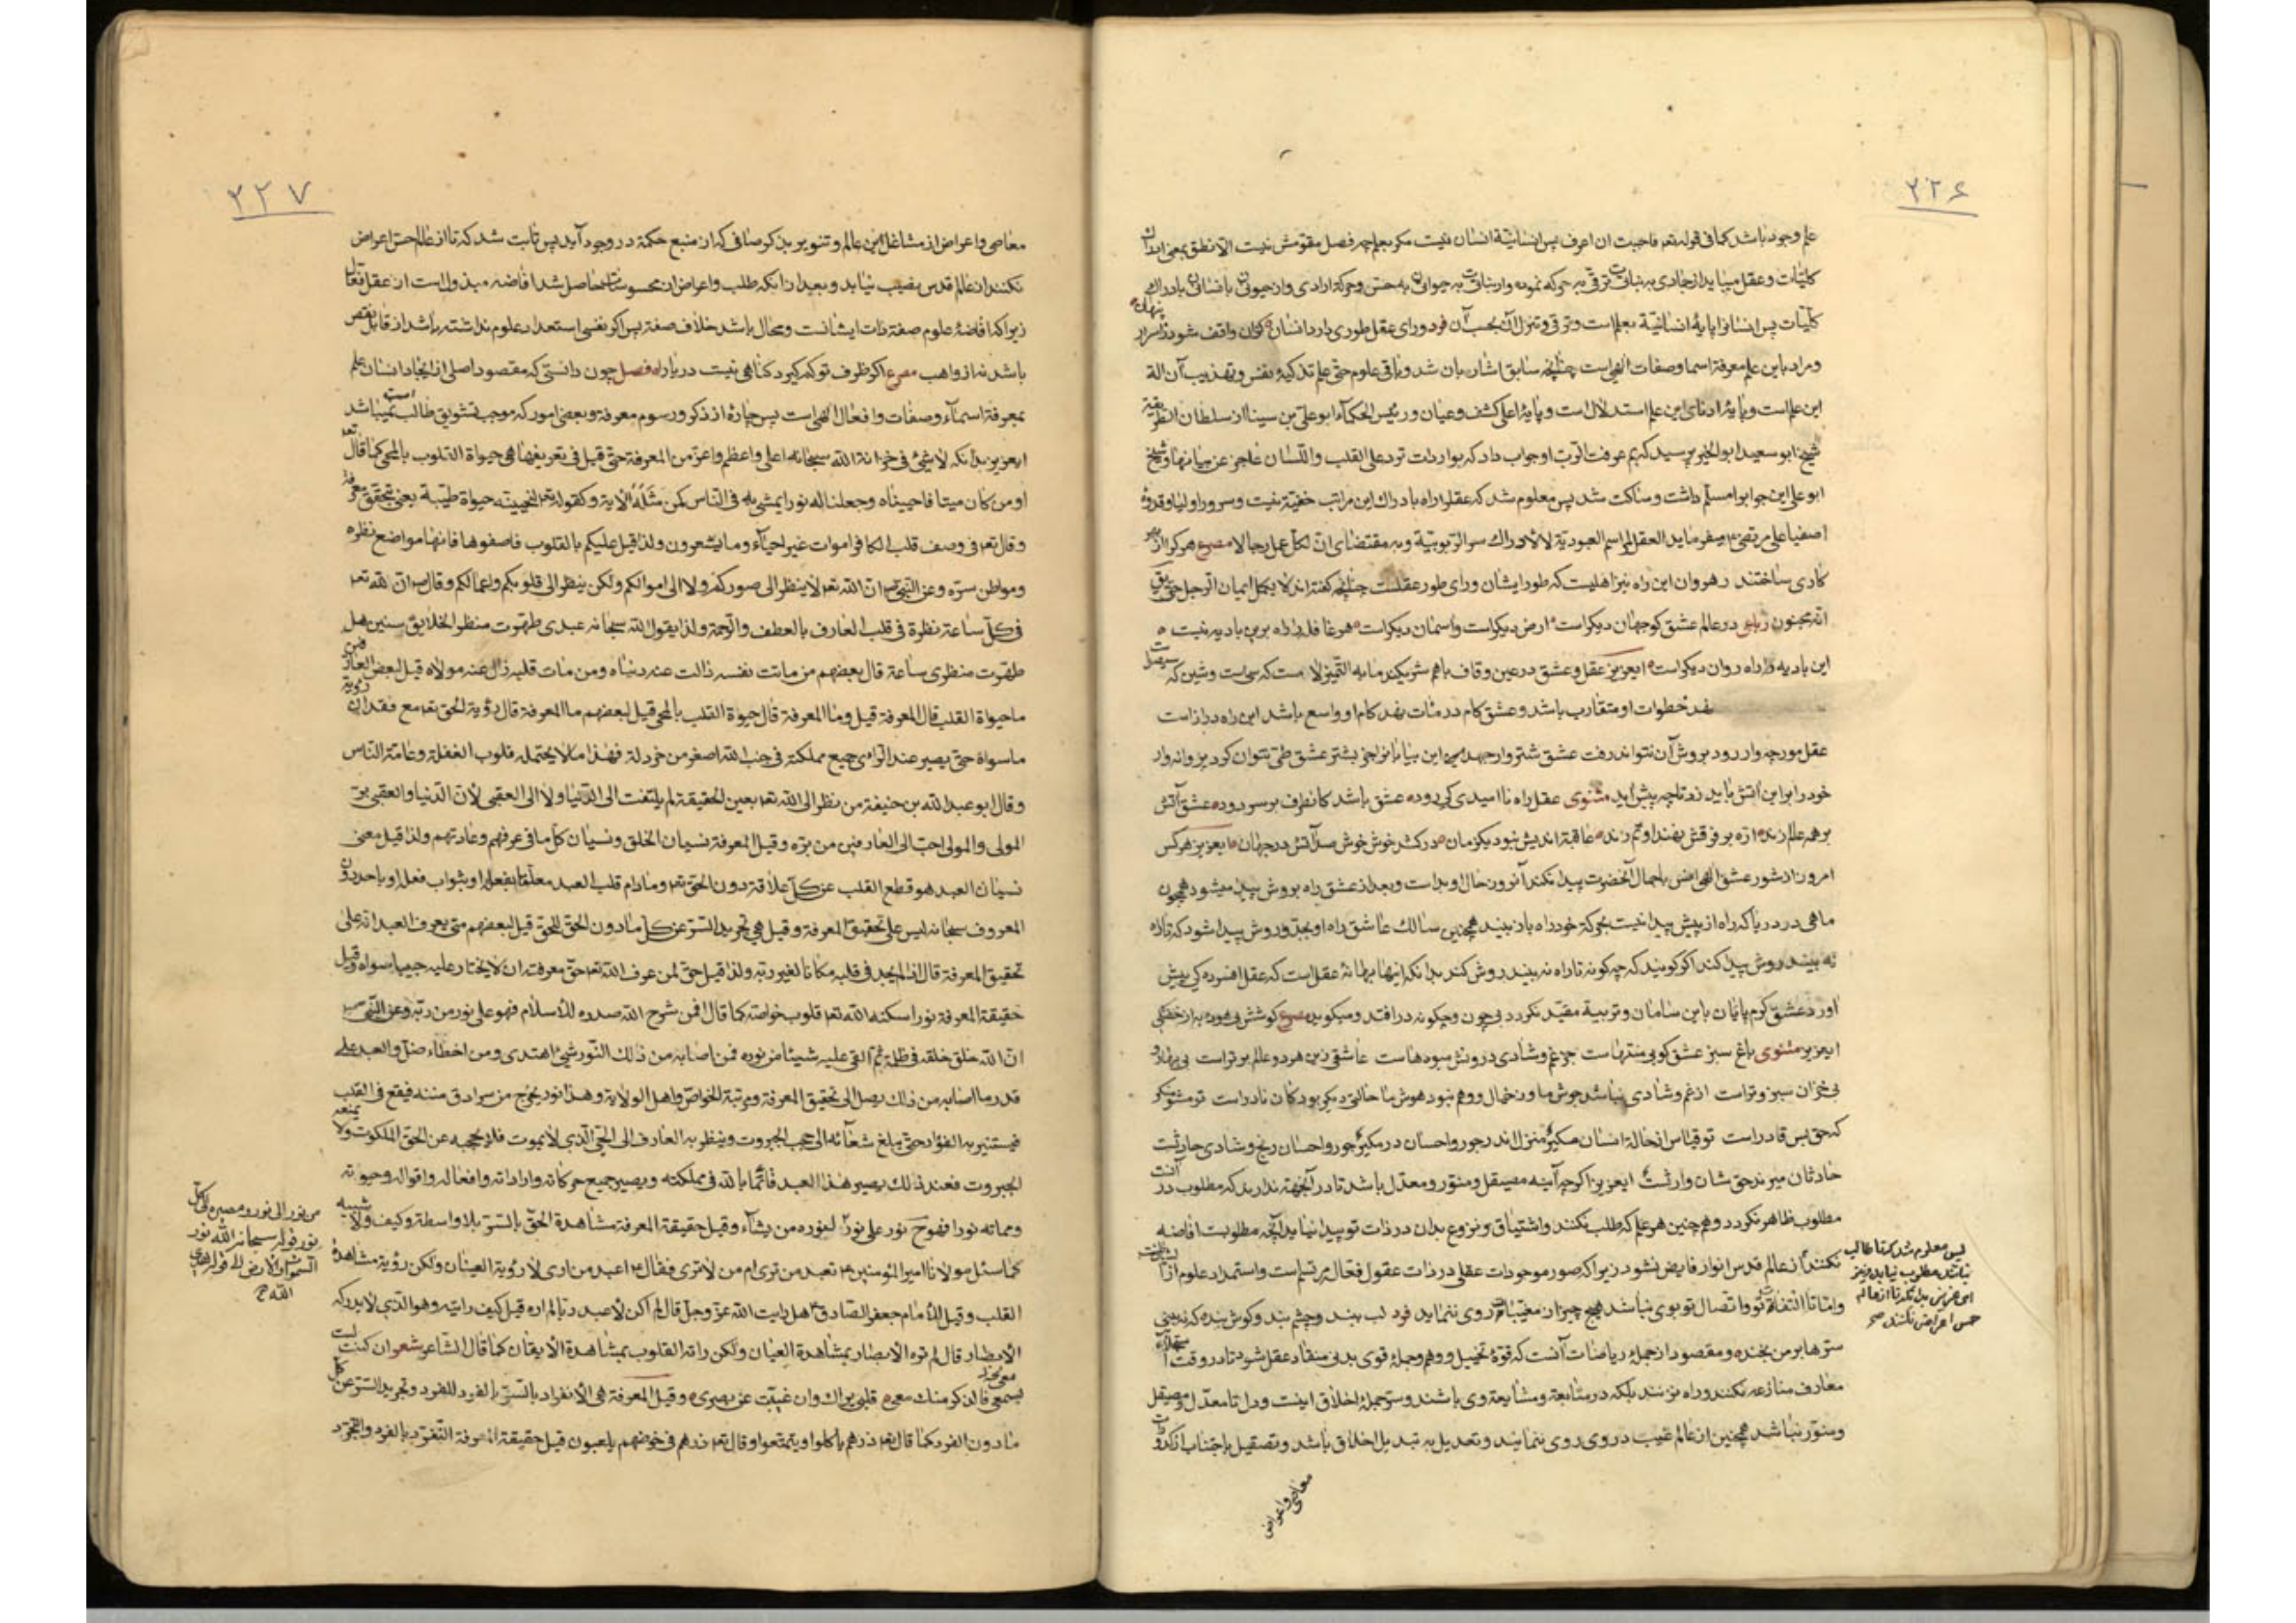 ۲۲۶
علم وجود باشد کما فی قوله تعه فاحببت ان اعرف پس انسانیّة انسان نیست مکر بعلم چه فصل مقوّمش نیست الّا نطق یعنی ادراک
کلیّات و عقل میباید از جمادی به نباتی ترقی به حرکه نموده و از نباتی به حیوانی به حسّ و حرکة ارادی و از حیوانی بانسانی بادراک
کلیّات پس انسانرا پایهٔ انسانیّة بعلم است و ترقی و تنزل آن بحسب آن فرد ورای عقل طوری دارد انسان که توان واقف شود ز اسرار پنهان
و مراد باین علم معرفة اسما و صفات الهی است چنانچه سابق اشاره بان شد و باقی علوم حتی علم تذکیهٔ نفس و تهذیب آن الة
این علم است و پایهٔ ادنای این علم استدلال است و پایهٔ اعلی کشف و عیان و رئیس الحکمآء ابو علی بن سینا از سلطان الطریقة
شیخ ابو سعید ابو الخیر پرسید که بم عرفت الربّ او جواب داد که بواردات ترد علی القلب و اللّسان عاجز عن بیانها و شیخ
ابو علی این جواب را مسلّم داشت و ساکت شد پس معلوم شد که عقل را راه بادراک این مراتب خفیّة نیست و سرور اولیا و قدوهٔ
اصفیا علی مرتضی ع میفرماید العقل لمراسم العبودیّة لا لادراک سر الربوبیّة و به مقتضای انّ لکلّ عمل رجالا مصرع هر کرا از بهر
کاری ساختند رهروان این راه نیز اهلیست که طور ایشان ورای طور عقلست چنانچه کفته اند لا یکمل ایمان الرجل حتی یق
انه مجنون رباعی در عالم عشق کو جهان دیکر است ارض دیکر است و اسمان دیکر است هر غافل را راه برین بادیه نیست
این بادیه را راه روان دیکر است ایعزیز عقل و عشق در عین وقاف باهم شریکند مابه التمیز لامست که سی است و شین که سیصد
خطوات او متقارب باشد و عشق کام در مائات نهد کام او واسع باشد این راه دراز است
عقل مورچه وار رود بروش آن نتواند رفت عشق شتر وار جهد این بیابانرا جز بشتر عشق طی نتوان کرد پروانه وار
خود را براین اتش باید زد تا چه پیش اید مثنوی عقل راه نا امیدی کی رود عشق باشد کان طرف بر سر رود عشق آتش
بر همه عالم زند ازه بر فرقش نهند او تم زند عاقبة اندیش نبود یکزمان در کشد خوش خوش صد آتش در جهان ایعزیز هر کس
امروز از شور عشق الهی انس باجمال آنحضرت پیدا نکند آنروز حال او بد است و بعد از عشق راه بروش پیدا میشود همچون
ماهی در دریا که راه از پیش پیدا نیست بحرکة خود راه باز نبیند همچنین سالک عاشق راه او بجدّ و روش پیدا شود که تا راه
نه بیند روش پیدا کند اکر کویند که چه کونه تا راه نه بیند روش کند بدانکه اینها بهانهٔ عقل است که عقل افسرده کی پیش
اورد عشق کرم پایان باین سامان و تربیة مقیّد نکردد بی چون و چکونه درافتد و میکوید مصرع کوشش بیهوده به از خفتکی
ایعزیز مثنوی باغ سبز عشق کو بی منتهاست جز غم و شادی درو بس میوهاست عاشقی زین هر دو عالم برتر است بی بهار و
بی خزان سبز و تر است از غم و شادی نباشد جوش ما وز خیال و وهم نبود هوش ما حالتی دیکر بود کان نادر است تو مشو منکر
که حق بس قادر است تو قیاس از حالة انسان مکن منزل اندر جور و احسان در مکن جور و احسان رنج و شادی حادثست
حادثان میرند حق شان وارثست ایعزیز اکر چه آینه مصیقل و منوّر و معدّل باشد تا در آنجهة ندارند که مطلوب در آنست
مطلوب ظاهر نکردد و همچنین هر علم که طلب نکنند و اشتیاق و نزوع بدان در ذات تو پیدا نیاید آنچه مطلوبست افاضه
نکنند از عالم قدس انوار فایض نشود زیرا که صور موجودات عقلی در ذات عقول فعّال مرتسم است و استمداد علوم از ایشانست
و امّا تا التفات تو و اتصال تو بوی نباشد هیچ چیز از مغیبات روی ننماید فرد لب ببند و چشم بند و کوش بند کر نه بینی
سرّ ها بر من بخند و مقصود از جملهٔ ریاضات آنست که قوّهٔ تخییل و وهم و جملهٔ قوی بدنی منقاد عقل شود تا در وقت استجلاء
معارف منازعه نکنند و راه نزنند بلکه در متابعة و مشایعة وی باشند و سرّ جملهٔ اخلاق اینست و دل تا معدّل و مصیقل
و منوّر نباشد همچنین از عالم غیب در وی روی ننمایند و تعدیل به تبدیل اخلاق باشد و تصقیل باجتناب از کدورات
معاصی و اعراض
پس معلوم شد که تا طالب
نباشد مطلوب نیابد و نیز
اعراض باید کرد تا از عالم
حس اعراض نکنند صح
۲۲۷
معاصی و اعراض از مشاغل این عالم و تنویر بذکر صافی که از منبع حکمة در وجود آید پس ثابت شد که تا از عالم حسّ اعراض
نکنند از عالم قدس نصیب نیابد و بعد از انکه طلب و اعراض از محسوسات حاصل شد افاضه مبذول است از عقل فعّال
زیرا که افاضهٔ علوم صفة ذات ایشانست و محال باشد خلاف صفة پس اکر نفسی استعداد علوم نداشته باشد از قابل نقص
باشد نه از واهب مصرع اکر ظرف تو کم کیرد کناهی نیست دریا را فصل چون دانستی که مقصود اصلی از ایجاد انسان علم
بمعرفة اسمآء و صفات و افعال الهی است پس چاره از ذکر و رسوم معرفة و بعض امور که موجب تشویق طالب است نمیباشد
ایعزیز بدانکه لا شیئ فی خزانة الله سبحانه اعلی و اعظم و اعزّ من المعرفة حتی قیل فی تعریفها هی حیواة القلوب بالمحی کما قال تعه
اومن کان میتا فاحییناه وجعلنا له نورا یمشی به فی الناس کمن مثله الآیة و کقوله تعه فلنحیینه حیواة طیّبة یعنی بتحقق معرفة
و قال تعه فی وصف قلب الکافر اموات غیر احیآء وما یشعرون ولذا قیل علیکم بالقلوب فاصفوها فانها مواضع نظره
ومواطن سرّه وعن النبی ص انّ الله تعه لا ینظر الی صورکم ولا الی اموالکم ولکن ینظر الی قلوبکم واعمالکم وقال ص انّ لله تعه
فی کلّ ساعة نظرة فی قلب العارف بالعطف والرّحمة ولذا یقول الله سبحانه عبدی طهّرت منظر الخلایق سنین هل
طهّرت منظری ساعة قال بعضهم من ماتت نفسه زالت عنه دنیاه ومن مات قلبه زال عنه مولاه قیل لبعض العارفین
ما حیواة القلب قال المعرفة قیل وما المعرفة قال حیواة القلب بالمحی قیل لبعضهم ما المعرفة قال رؤیة الحق تعه مع فقدان رؤیة
ما سواه حتی یصیر عند الرّای جمیع مملکته فی جنب الله اصغر من خردلة فهذا ما لا یحتمله قلوب الغفلة وعامّة الناس
وقال ابو عبد الله بن حنیفة من نظر الی الله تعه بعین الحقیقة لم یلتفت الی الدّنیا ولا الی العقبی لانّ الدّنیا والعقبی برّ
المولی والمولی احبّ الی العارفین من برّه وقیل المعرفة نسیان الخلق ونسیان کلّ ما فی عرفهم وعادتهم ولذا قیل معنی
نسیان العبد هو قطع القلب عن کلّ علاقة دون الحق تعه وما دام قلب العبد معلّقا بفعله او بثواب فعله او باحد دون
المعروف سبحانه لیس علی تحقیق المعرفة وقیل هی تجرید السّر عن کلّ ما دون الحق للحق قیل لبعضهم متی یعرف العبد انه علی
تحقیق المعرفة قال اذا لم یجد فی قلبه مکانا لغیر ربّه ولذا قیل حقّ لمن عرف الله تعه حقّ معرفته ان لا یختار علیه حبیبا سواه وقیل
حقیقة المعرفة نور اسکنه الله تعه قلوب خواصّه کما قال افمن شرح الله صدره للاسلام فهو علی نور من ربّه وعن النبی ص
انّ الله خلق خلقه فی ظلمة ثمّ القی علیه شیئا من نوره فمن اصابه من ذلک النّور شیئ اهتدی ومن اخطاء ضلّ والعبد علی
قدر ما اصابه من ذلک یصل الی تحقیق المعرفة ومرتبة الخواصّ واهل الولایة وهذا نور یخرج من سرادق منته فیقع فی القلب
فیستنیر به الفؤاد حتی یبلغ شعآئه الی حجب الجبروت وینظر به العارف الی الحیّ الّذی لا یموت فلا یحجبه عن الحق الملکوت ولا یمنعه
الجبروت فعند ذلک یصیر هذا العبد قائما بالله فی مملکته ویصیر جمیع حرکاته وارادته وافعاله واقواله وحیوته
ومماته نورا فهو ح نور علی نور لنوره من یشآء وقیل حقیقة المعرفة مشاهدة الحقّ بالسرّ بلا واسطة وکیف ولا شبیه
کما سئل مولانا امیر المؤمنین ع تعبد من تری ام من لا تری فقال ع اعبد من اری لا رؤیة العیان ولکن رؤیة مشاهدة
القلب وقیل للامام جعفر الصّادق ع هل رایت الله عزّ وجلّ قال لم اکن لاعبد ربّا لم اره قیل کیف رایته وهو الذی لا یدرکه
الابصار قال لم تره الابصار بمشاهدة العیان ولکن راته القلوب بمشاهدة الایقان کما قال الشّاعر شعر ان کنت لست
معی فالذکر منک معی قلبی یراک وان غیبت عن بصری وقیل المعرفة هی الانفراد بالسّرّ بالفرد للفرد وتجرید السّرّ عن کل
ما دون الفرد کما قال تعه ذرهم یاکلوا ویتمتعوا وقال تعه ذرهم فی خوضهم یلعبون قیل حقیقة المعرفة التّفرّد بالفرد والتجرّد
من نور الی نور ومصیره لی کل
نور فوله سبحانه الله نور
السّموات والارض الی قوله یهدی
الله ح